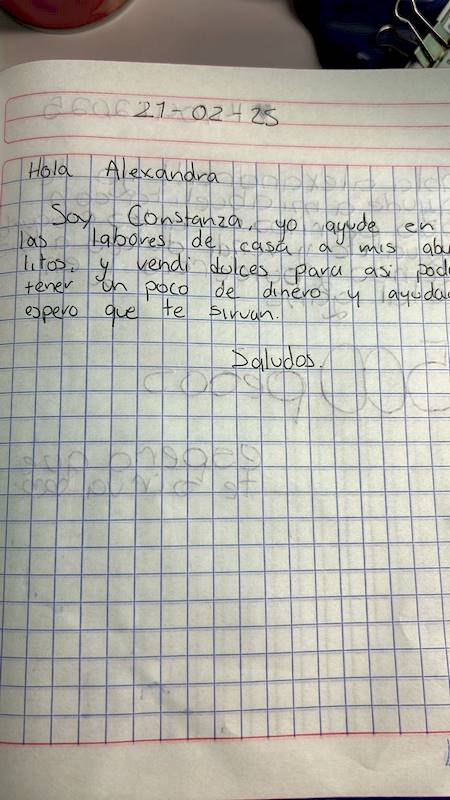 21-02-25
Hola Alexandra
Soy Constanza, yo ayude en
las labores de casa a mis abu
litos, y vendi dolces para asi pod
tener un poco de dinero y ayuda
espero que te sirvan.
Saludos.